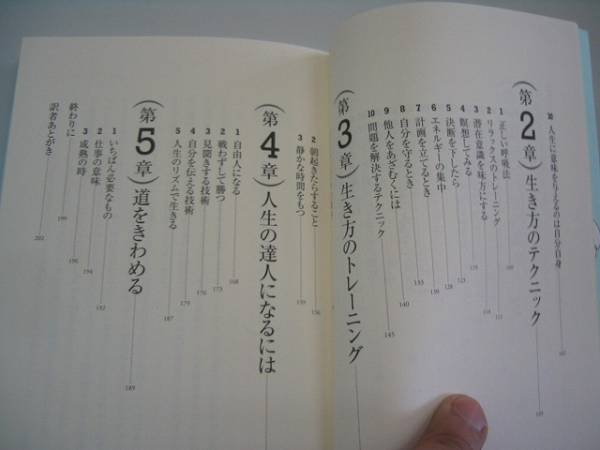 30 人生に意味を与えるのは自分自身
第2章 生き方のテクニック
1 正しい呼吸法
2 リラックスのトレーニング
3 潜在意識を味方にする
4 瞑想してみる
5 決断を下したら
6 エネルギーの集中
7 計画を立てるとき
8 自分を守るとき
9 他人をあざむくには
10 問題を解決するテクニック 145
第3章 生き方のトレーニング
2 朝起きたらすること 156
3 静かな時間をもつ 159
第4章 人生の達人になるには
1 自由人になる 168
2 戦わずして勝つ 173
3 見聞きする技術 176
4 自分を伝える技術 179
5 人生のリズムで生きる 187
第5章 道をきわめる 189
1 いちばん必要なもの 192
2 仕事の意味 194
3 成熟の時 196
終わりに 199
訳者あとがき 202